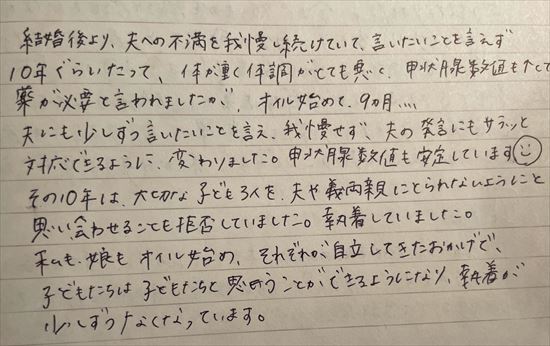 結婚後より、夫への不満を我慢し続けていて、言いたいことを言えず
10年ぐらいたって、体が重く体調がとても悪く、甲状腺数値も
薬が必要と言われましたが、オイル始めて、9カ月....
夫にも少しずつ言いたいことを言え、我慢せず、夫の発言にもサラッと
対応できるように、変わりました。甲状腺数値も安定しています
その10年は、大切な子ども3人を、夫や義両親にとられないようにと
思い会わせることも拒否していました。執着していました。
私も、娘も オイル始め、それぞれが自立してきたおかげで、
子どもたちは子どもたちと思うことができるようになり、執着が
少しずつなくなっています。